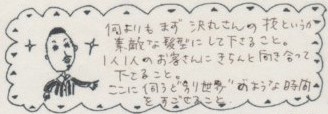 何よりもまず 沢丸さんの 技というか
素敵な髪型にして下さること。
1人1人のお客さんにきちんと向き合って
下さること。
ここに伺うと"別世界"のような時間
をすごせること